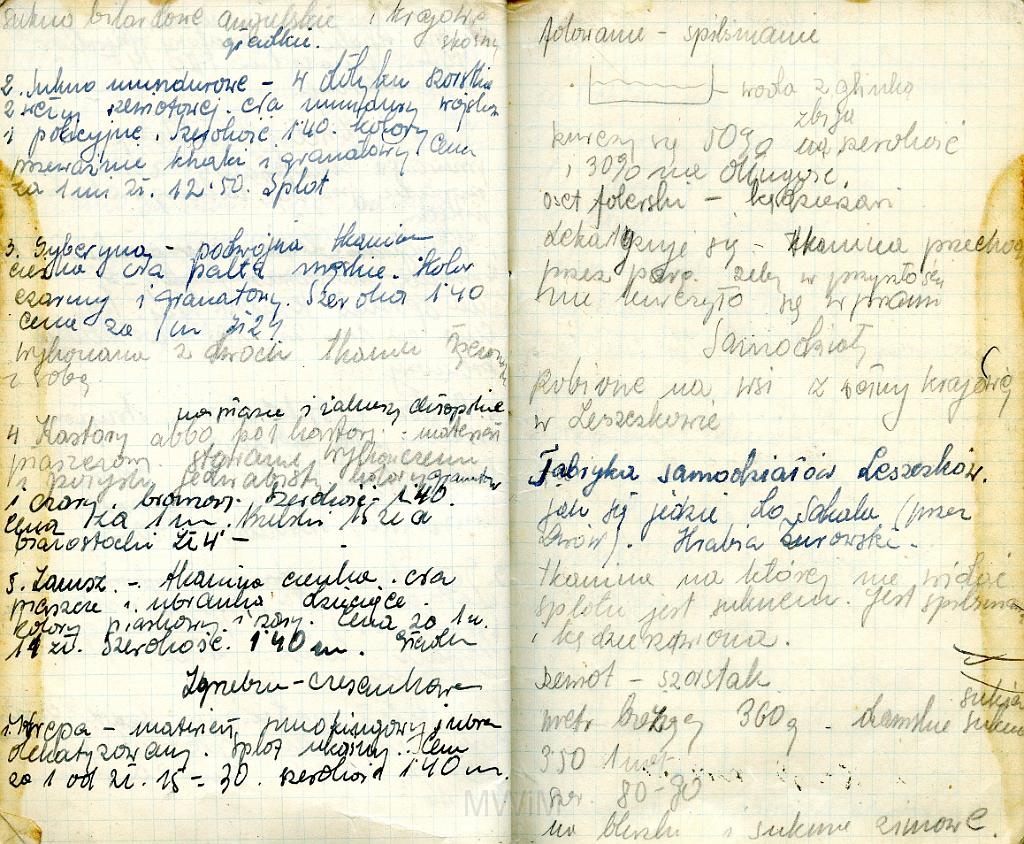 Sukno bilardowe angielskie i krajowe
gładkie. skośny
2. Sukno mundurowe - w dotyku szorstkie
z wełny szewiotowej dla munduru wojsko
i policyjne. Szerokość 1'40. kolory
przeważnie khaki i granatowy. Cena
za 1 m zł. 12.50. Splot
3. Syberyna - podwójna tkanina
ciepła dla palta męskie. Kolor
czarny i granatowy. Szeroka 1'40
cena za 1 m zł 24
wykonana z dwóch tkanin
z sobą
na płaszcze i żakiety chłopskie
4 Kastory albo pół kastory - materiał
płaszczowy. starannie wykończony
kolory granatow
i czarny bronzowy. Szerokość 1'40.
Cena za 1 m. bielski 15 zł a
białostocki zł 4 -
5. Zamsz. - tkanina cienka. dla
płaszcze i ubranka dziecięce.
kolory piaskowy i szary. Cena za 1 m.
14 zł. Szerokość. 1'40 m. Gładki
Zgrzebno-czesankowe
1. Krepa - materiał smokingowy
dekatyzowany. Splot ukośny. Cena
za 1 od zł. 15 - 30. szerokość 1'40 m.
folowanie - spilśnianie
woda z glinką
zbija
kurczy się 50% na szerokość
i 30% na długość.
oset folerski - kędzierzawi
dekatyzuje się - tkanina przechodzi
przez parę. żeby w przyszłości
nie kurczyło się w praniu
Samodziały
Robione na wsi z wełny krajowej
w Leszczkowie
Fabryka samodziałów Leszczków.
jak się jedzie do Sokala (przez
Lwów). Hrabia Żurowski.
tkanina na której nie widać
splotu jest suknem. Jest spilśniona
i kędzierzawiona.
szewiot - szorstak
metr bieżący 360 g - damskie suknie
350 1 met
szer. 80-90
na bluzki i suknie zimowe.
MWiM